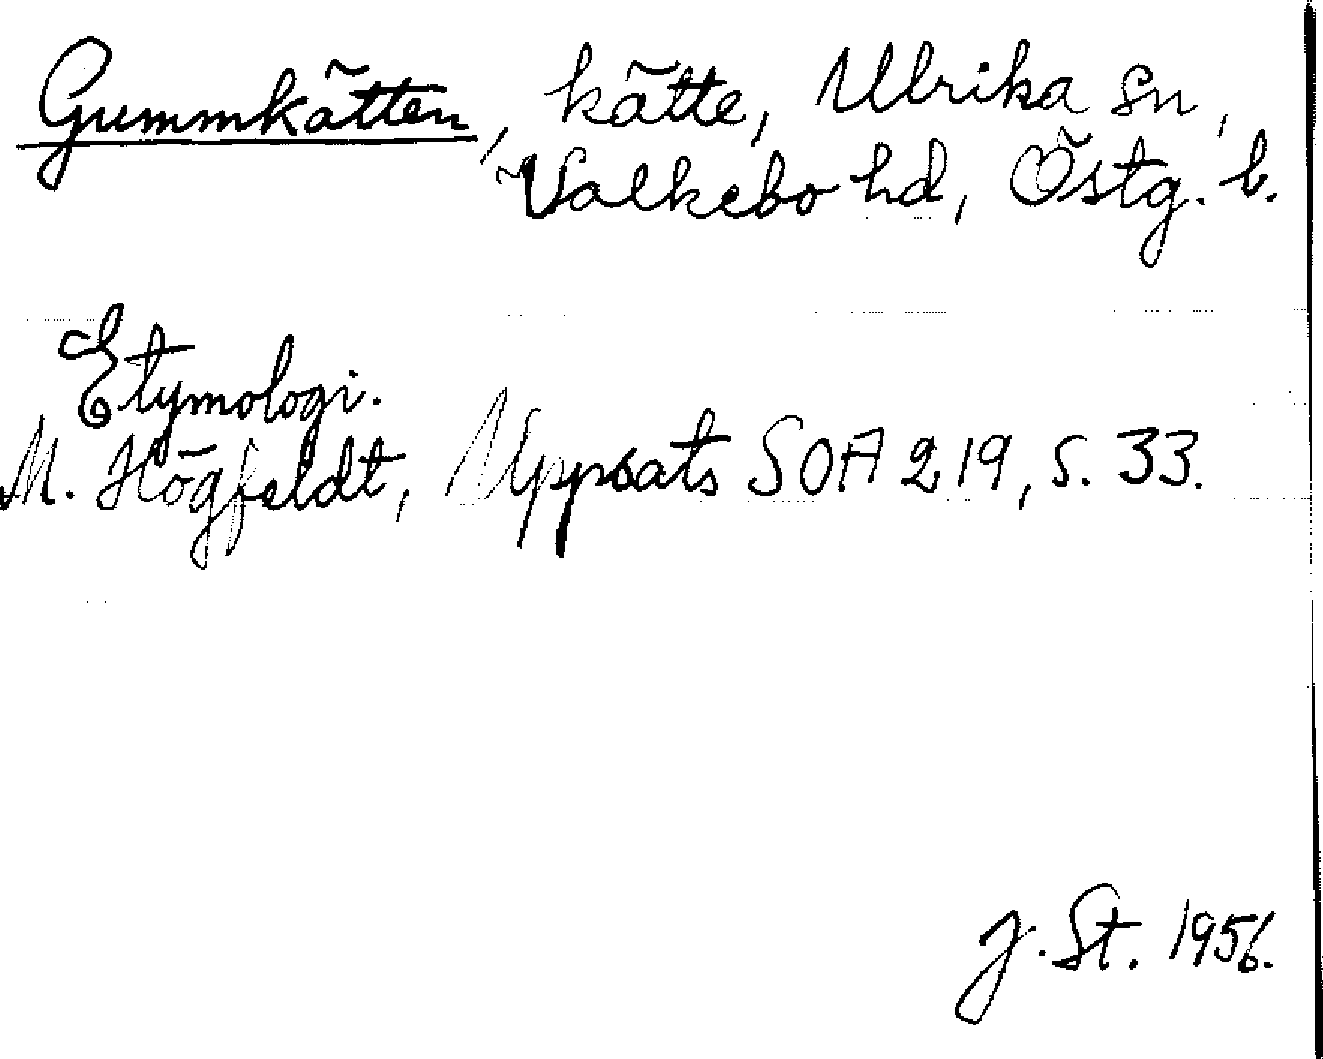 Gummkätten, kätte, Ulrika sn,
Valkebo hd, Östg. l.
Etymologi.
M. Högfeldt, Uppsats SOA 219, s. 33.
J. St. 1956.